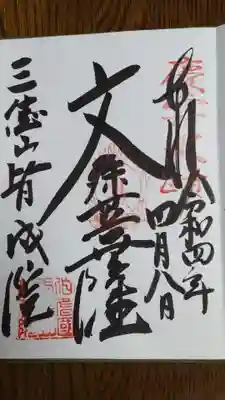 奉拝
令和四年
四月八日
文殊菩薩
三徳山皆成院